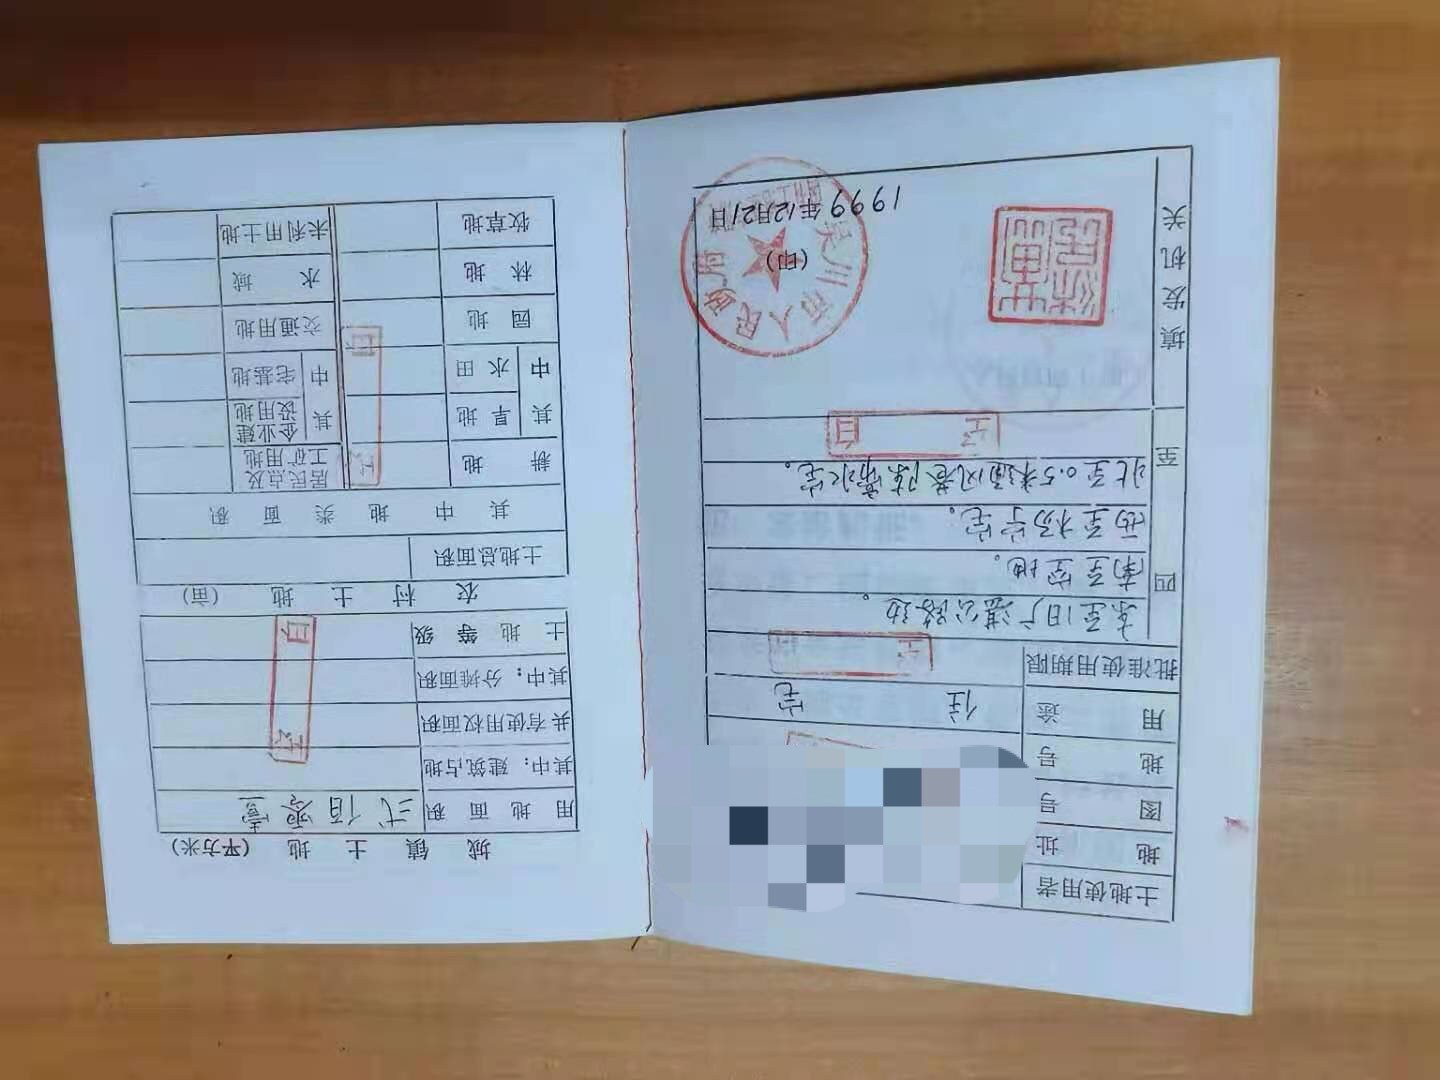 土地使用者
地 址
图 号
地 号
用 途 住 宅
批准使用期限 空
四 至
东至旧广湛公路边。
南至空地。
西至杨 宅。
北至0.5米通风巷陈 水宅。
空 白
填发机关
吴川市人民政府
(印)
1999年12月21日
城 镇 土 地 (平方米)
用 地 面 积 弍佰零壹
其中：建筑占地
共有使用权面积
其中：分摊面积
土 地 等 级
空 白
农 村 土 地 (亩)
土地总面积
其 中 地 类 面 积
耕 地 居民点及工矿用地
其中 旱 地 其中 企业建设用地
水 田 宅基地
空 白
园 地 交通用地
林 地 水 域
牧草地 未利用土地